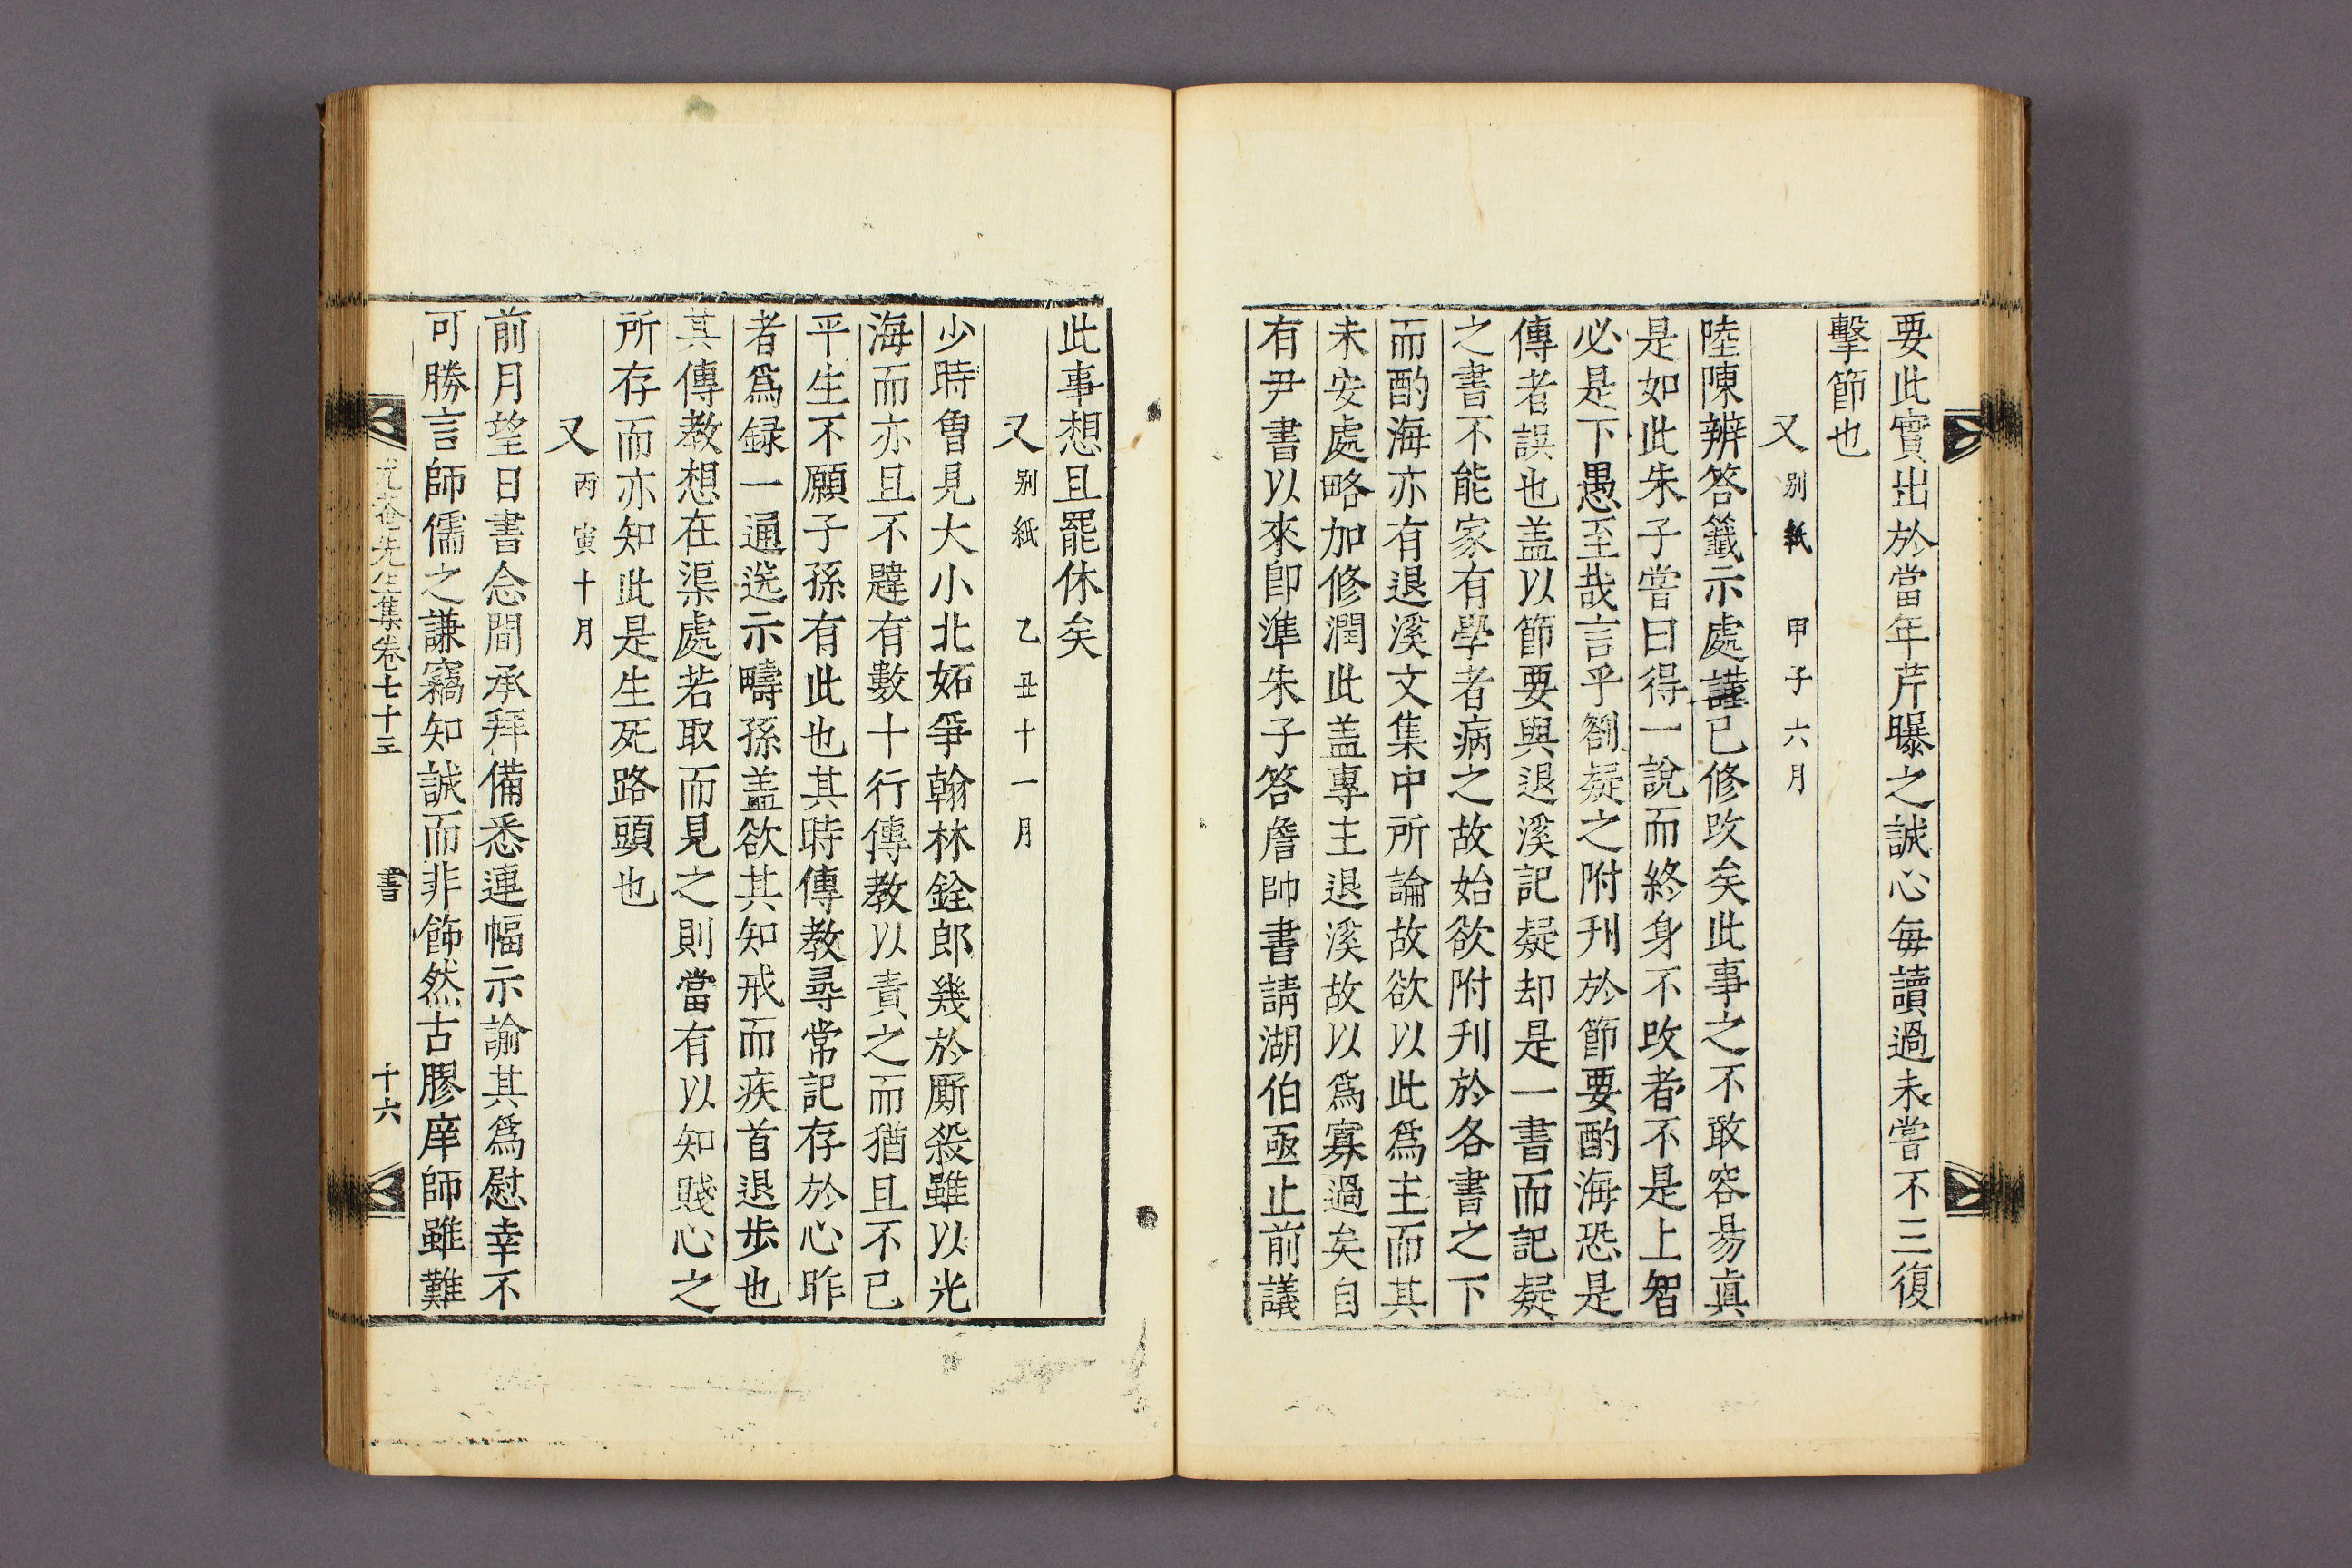 要此實出於當年芹曝之誠心每讀過未嘗不三復
擊節也
又 别紙 甲子六月
陸陳辨答籤示處謹已修改矣此事之不敢容易眞
是如此朱子嘗曰得一說而終身不改者不是上智
必是下愚至哉言乎劄疑之附刋於節要酌海恐是
傳者誤也盖以節要與退溪記疑却是一書而記疑
之書不能家有學者病之故始欲附刋於各書之下
而酌海亦有退溪文集中所論故欲以此爲主而其
未安處略加修潤此盖專主退溪故以爲寡過矣自
有尹書以來卽準朱子答詹帥書請湖伯亟止前議
此事想且罷休矣
又 别紙 乙丑十一月
少時曾見大小北妬爭翰林銓郎幾於厮殺雖以光
海而亦且不韙有數十行傳教以責之而猶且不已
平生不願子孫有此也其時傳教尋常記存於心昨
者爲録一通送示疇孫盖欲其知戒而疾首退步也
其傳教想在渠處若取而見之則當有以知賤心之
所存而亦知此是生死路頭也
又 丙寅十月
前月望日書念間承拜備悉連幅示諭其爲慰幸不
可勝言師儒之謙竊知誠而非飾然古膠庠師雖難
尤菴先生集卷七十三 書 十六